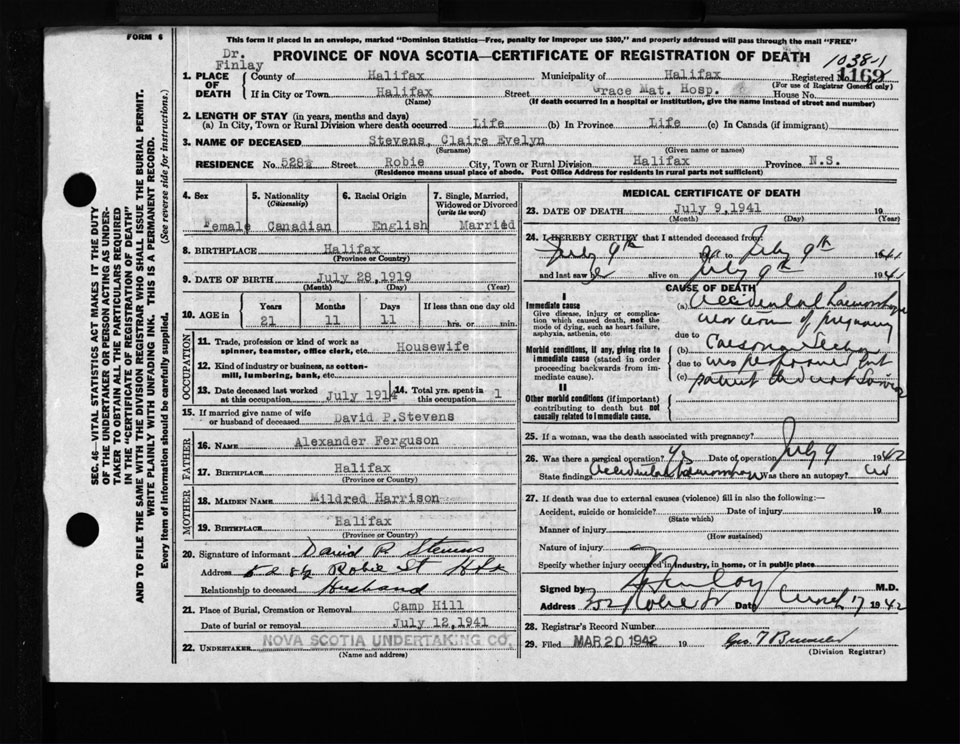 FORM 6
This form if placed in an envelope, marked "Dominion Statistics—Free, penalty for improper use $300," and properly addressed will pass through the mail "FREE"
Dr. Finlay
PROVINCE OF NOVA SCOTIA—CERTIFICATE OF REGISTRATION OF DEATH
1038-1
1. PLACE OF DEATH County of Halifax Municipality of Halifax Registered No. 1169
(For use of Registrar General only)
If in City or Town Halifax Street Grace Mat. Hosp. House No.
(Name) (If death occurred in a hospital or institution, give the name instead of street and number)
2. LENGTH OF STAY (in years, months and days)
(a) In City, Town or Rural Division where death occurred Life (b) In Province Life (c) In Canada (if immigrant)
3. NAME OF DECEASED Stevens, Claire Evelyn
(Surname) (Given name or names)
RESIDENCE No. 528½ Street Robie City, Town or Rural Division Halifax Province N.S.
(Residence means usual place of abode. Post Office Address for residents in rural parts not sufficient)
4. Sex 5. Nationality (Citizenship) 6. Racial Origin 7. Single, Married, Widowed or Divorced (write the word)
Female Canadian English Married
8. BIRTHPLACE Halifax
(Province or Country)
9. DATE OF BIRTH July 28,1919
(Month) (Day) (Year)
10. AGE in Years Months Days If less than one day old
21 11 11 hrs. or min.
OCCUPATION
11. Trade, profession or kind of work as spinner, teamster, office clerk, etc. Housewife
12. Kind of industry or business, as cotton-mill, lumbering, bank, etc.
13. Date deceased last worked at this occupation July 1914 14. Total yrs. spent in this occupation 1
15. If married give name of wife or husband of deceased David P.Stevens
FATHER
16. NAME Alexander Ferguson
17. BIRTHPLACE Halifax
(Province or Country)
MOTHER
18. MAIDEN NAME Mildred Harrison
19. BIRTHPLACE Halifax
(Province or Country)
20. Signature of informant David P. Stevens
Address 528½ Robie St Hfx
Relationship to deceased Husband
21. Place of Burial, Cremation or Removal Camp Hill
Date of burial or removal July 12,1941
22. UNDERTAKER NOVA SCOTIA UNDERTAKING CO.
(Name and address)
MEDICAL CERTIFICATE OF DEATH
23. DATE OF DEATH July 9,1941 19
(Month) (Day) (Year)
24. I HEREBY CERTIFY that I attended deceased from:
July 9th to July 9th 1941
and last saw her alive on July 9th 1941
CAUSE OF DEATH
I
Immediate cause
Give disease, injury or complication which caused death, not the mode of dying, such as heart failure, asphyxia, asthenia, etc
(a) Accidental haemorrhage
near term of pregnancy
due to
Morbid conditions, if any, giving rise to immediate cause (stated in order proceeding backwards from immediate cause).
(b) Caesarian Section
due to was performed but
(c) patient did not survive
II
Other morbid conditions (if important) contributing to death but not causally related to immediate cause.
25. If a woman, was the death associated with pregnancy?
26. Was there a surgical operation? Yes Date of operation July 9 1942
State findings Accidental haemorrhage Was there an autopsy?
27. If death was due to external causes (violence) fill in also the following:—
Accident, suicide or homicide? Date of injury 19
(State which)
Manner of injury
(How sustained)
Nature of injury
Specify whether injury occurred in industry, in home, or in public place
Signed by Finlay M.D.
Address Robie St Date March 17 1942
28. Registrar's Record Number
29. Filed MAR 20 1942 19
(Division Registrar)
SEC. 46—VITAL STATISTICS ACT MAKES IT THE DUTY
OF THE UNDERTAKER OR PERSON ACTING AS UNDER-
TAKER TO OBTAIN ALL THE PARTICULARS REQUIRED
IN THE "CERTIFICATE OF REGISTRATION OF DEATH"
AND TO FILE THE SAME WITH THE DIVISION REGISTRAR WHO SHALL ISSUE THE BURIAL PERMIT.
WRITE PLAINLY WITH UNFADING INK. THIS IS A PERMANENT RECORD.
Every item of information should be carefully supplied. (See reverse side for instructions.)